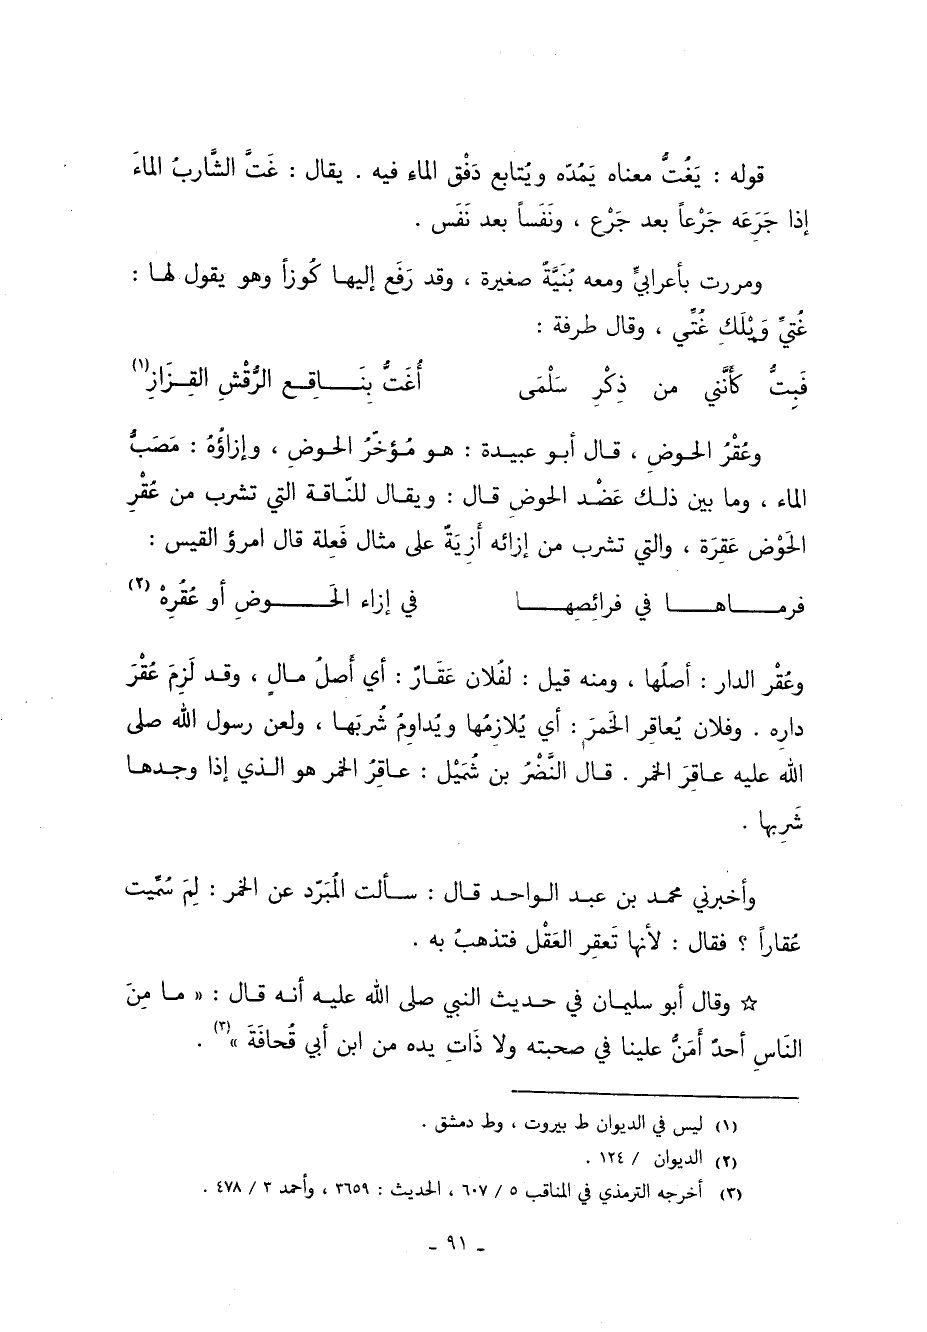 قوله : يَغُتُّ معناه يَمُدّه ويُتابع دَفْق الماء فيه . يقال : غَتَّ الشَّاربُ الماءَ
إذا جَرَعَه جَرْعاً بعد جَرْع ، ونَفَساً بعد نَفَس .
ومررت بأعرابيٍّ ومعه بُنَيَّةٌ صغيرة ، وقد رَفَع إليها كُوزاً وهو يقول لها :
غُتيِّ وَيْلَكِ غُتِّي ، وقال طرفة :
فَبِتُّ كأنَّني من ذِكْرِ سَلْمَى أُغَتُّ بِنَــاقِعِ الرُّقْشِ القِزَازِ(١)
وعُقْرُ الحوضِ ، قال أبو عبيدة : هو مُؤخّرُ الحوضِ ، وإزاؤُهُ : مَصَبُّ
الماء ، وما بين ذلك عَضْد الحوض قال : ويقال للنّاقة التي تشرب من عُقْرِ
الحَوْض عَقِرَة ، والتي تشرب من إزائه أَزِيَةٌ على مثال فَعِلة قال امرؤ القيس :
فرمــاهــا في فرائصهــا في إزاء الحَــوضِ أو عُقُرِهْ (٢)
وعُقْر الدار : أصلُها ، ومنه قيل : لفُلان عَقَارٌ : أي أَصلُ مالٍ ، وقد لَزِمَ عُقْرَ
دارِه . وفلان يُعاقِر الخَمرَ : أي يُلازمُها ويُداومُ شُربَها ، ولعن رسول الله صلى
الله عليه عاقِرَ الخمر . قال النَّضْرُ بن شُمَيْل : عاقِرُ الخمر هو الذي إذا وجدها
شَرِبها .
وأخبرني محمد بن عبد الواحد قال : سألت المُبَرّد عن الخمر : لِمَ سُمِّيت
عُقاراً ؟ فقال : لأنها تَعقِر العَقْل فتذهبُ به .
☆ وقال أبو سليمان في حديث النبي صلى الله عليه أنه قال : « ما مِنَ
النَّاسِ أحدٌ أَمَنُّ علينا في صحبته ولا ذَاتِ يده من ابن أبي قُحافَةَ »(٣) .
(١) ليس في الديوان ط بيروت ، وط دمشق .
(٢) الديوان / ١٢٤ .
(٣) أخرجه الترمذي في المناقب ٥ / ٦٠٧ ، الحديث : ٣٦٥٩ ، وأحمد ٣ / ٤٧٨ .
ـ ٩١ ـ